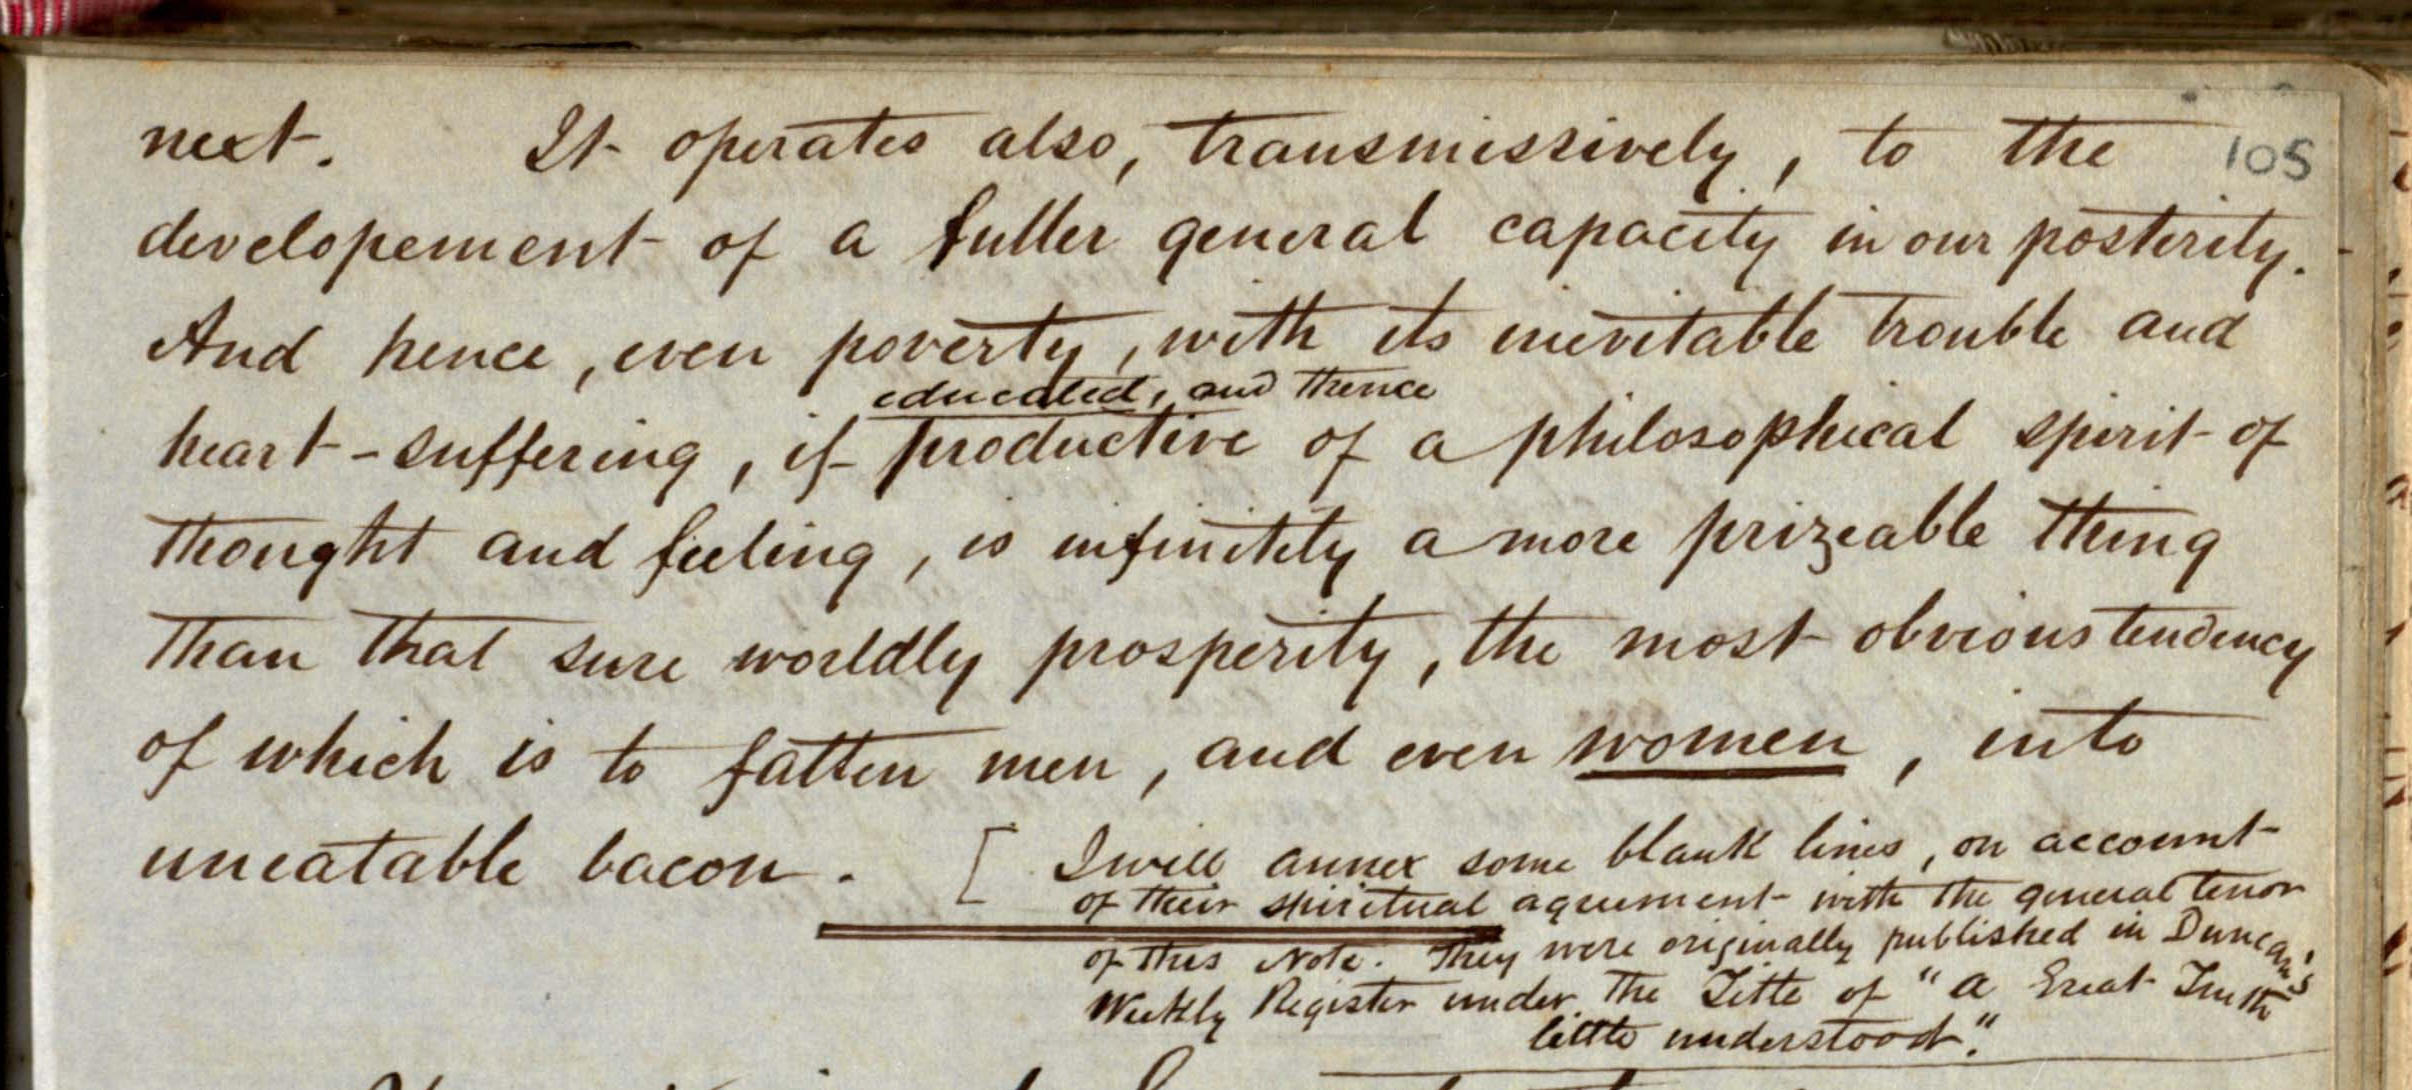 next. It operates also, transmissively, to the 105
developement of a fuller general capacity in our posterity.
And hence, even poverty, with its inevitable trouble and
educated, and thence
heart-suffering, if productive of a philosophical spirit of
thought and feeling, is infinitely a more prizeable thing
than that sure worldly prosperity, the most obvious tendency
of which is to fatten men, and even women, into
uneatable bacon. [ I will annex some blank lines, on account
of their spiritual agreement with the general tenor
of this Note. They were originally published in Duncan's
Weekly Register under the Title of "A Great Truth
little understood".